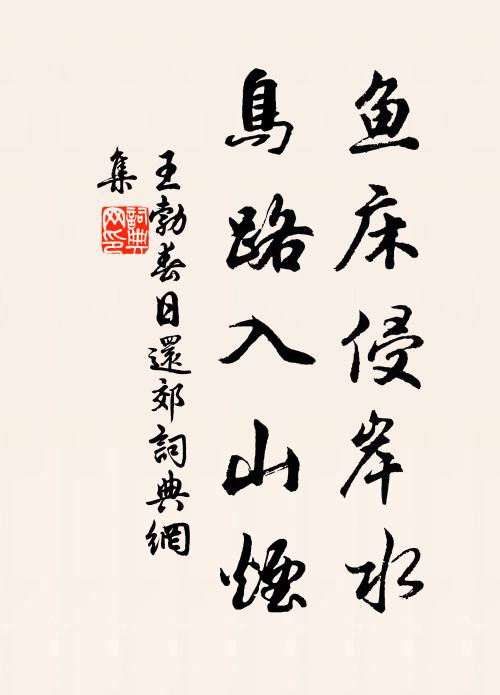 鱼床侵岸水
鳥路入山煙
王勃春日還郊詞典網
集
詞典网印